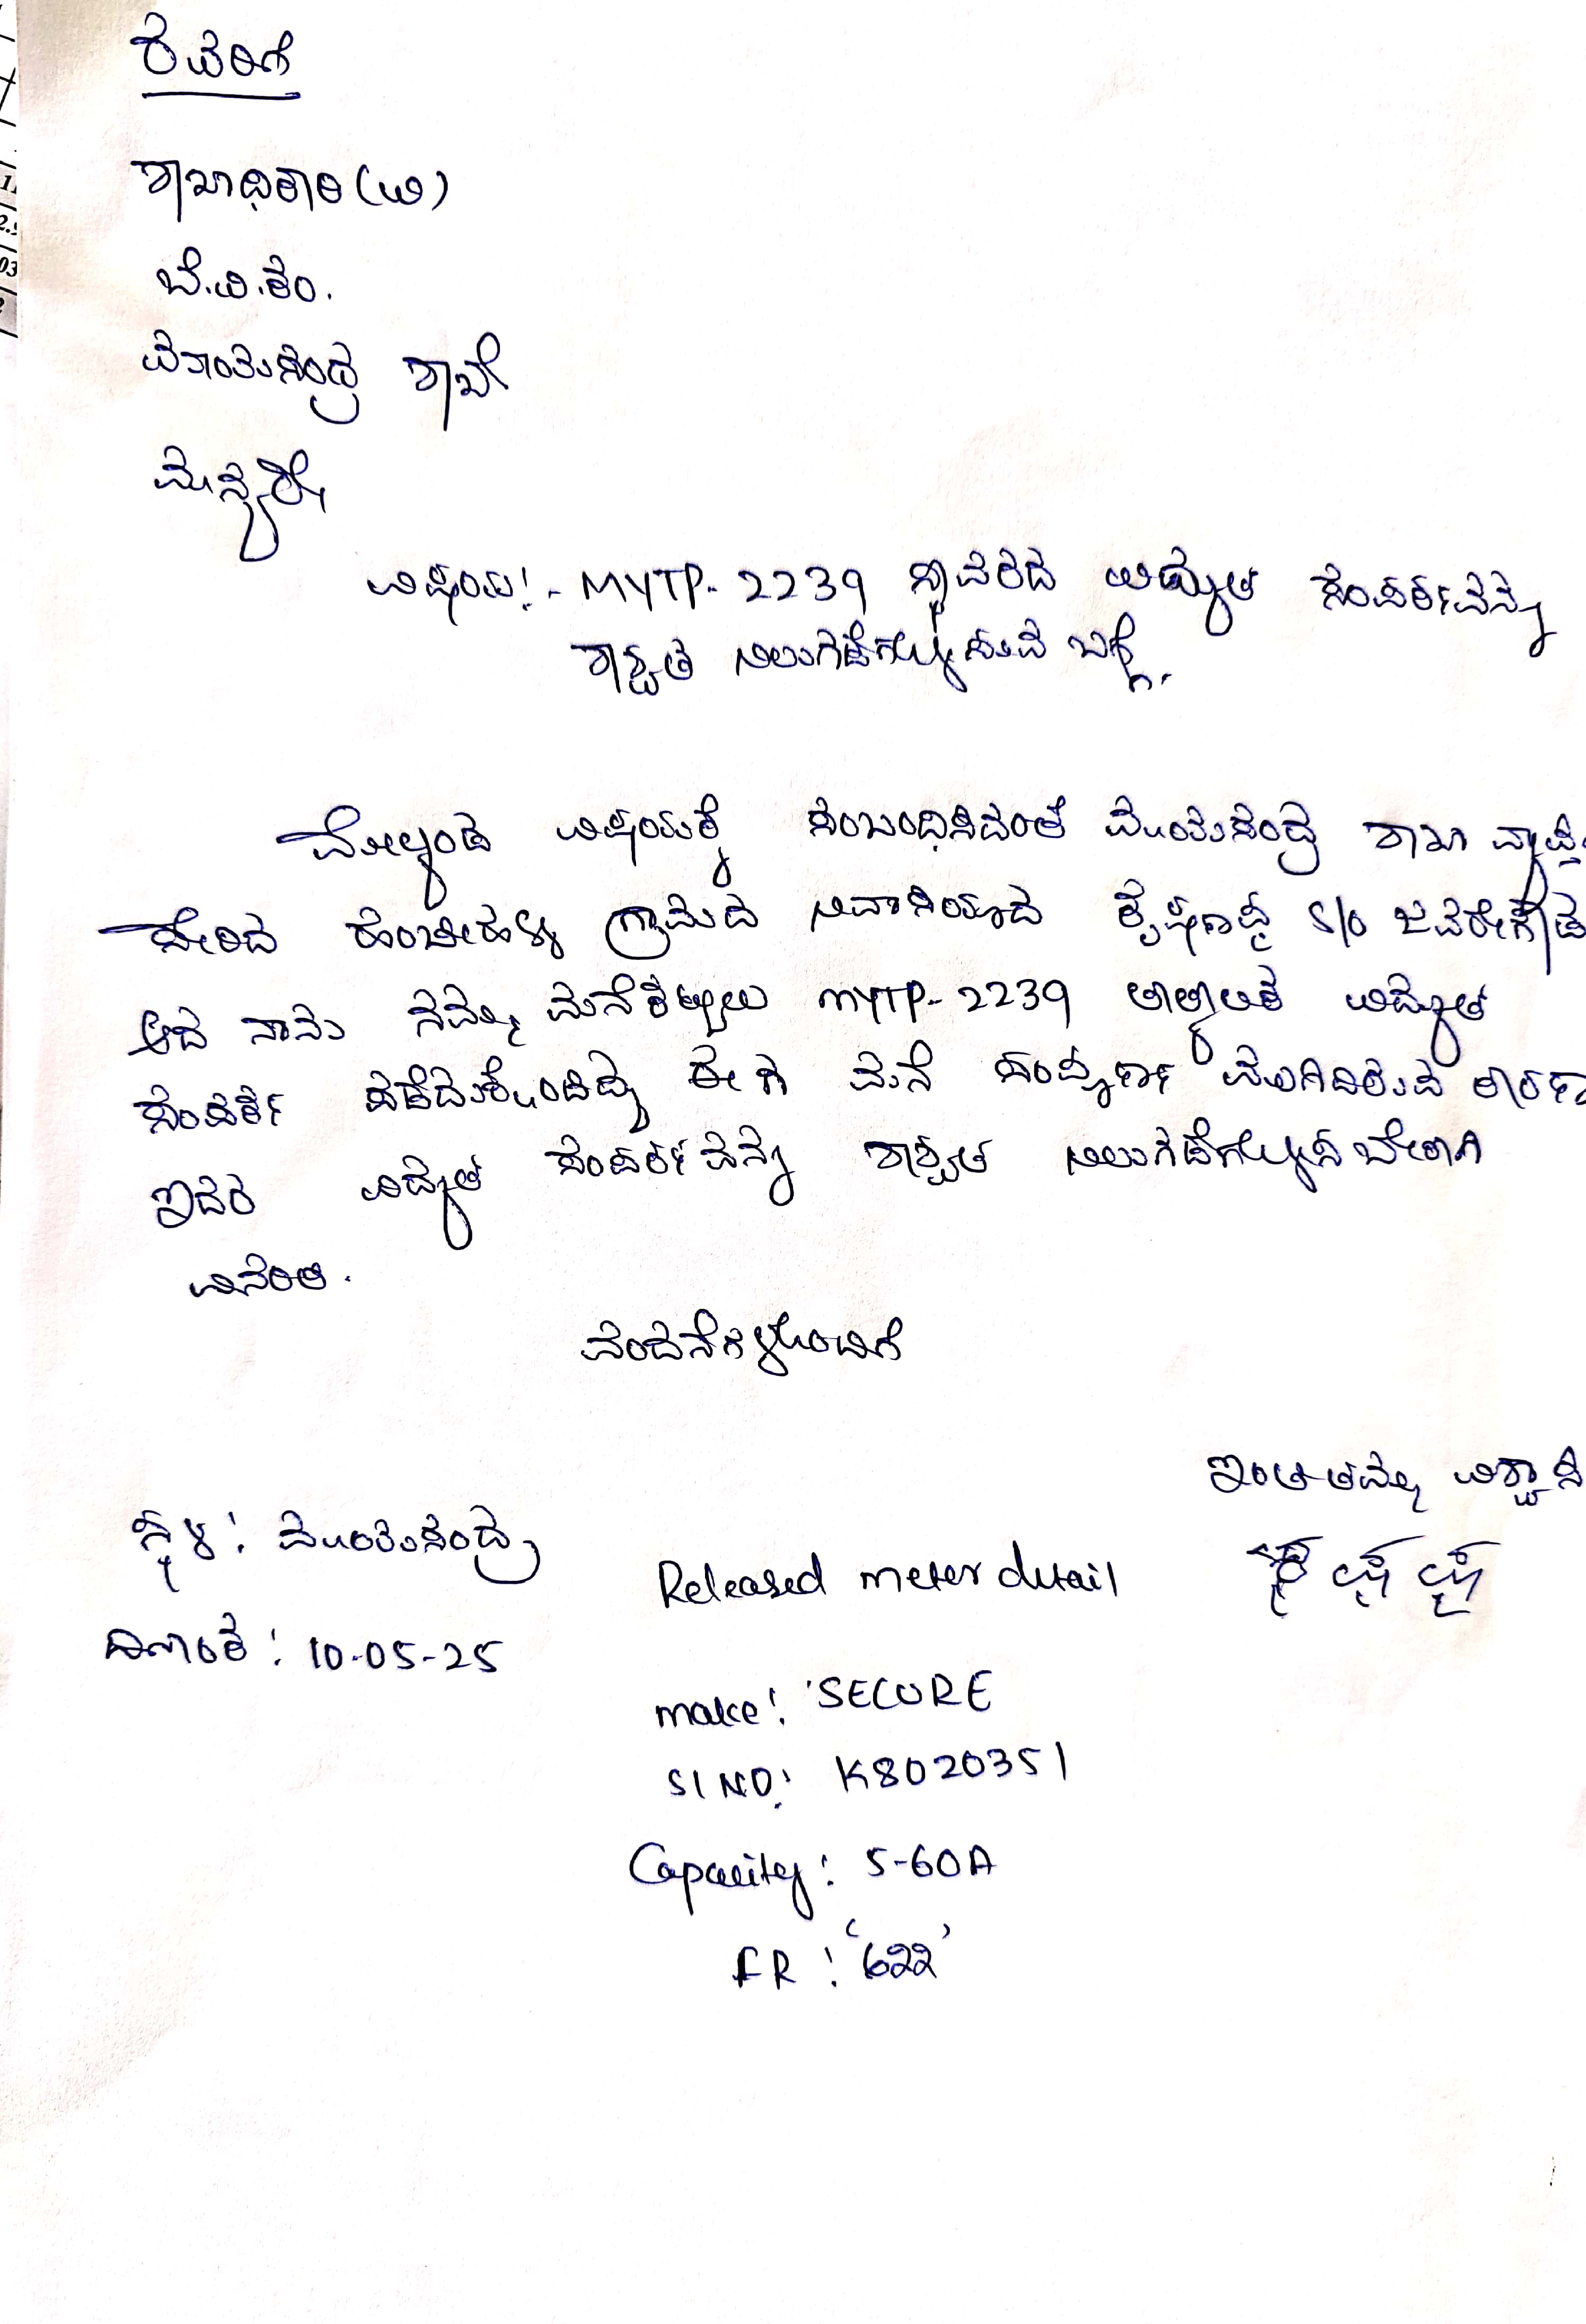 ರವರಿಗೆ
ಶಾಖಾಧಿಕಾರಿ (ವಿ)
ಬೆ.ವಿ.ಕಂ.
ಶಾಖೆ
ಮಾನ್ಯರೇ,
ವಿಷಯ:- MYTP-2239 ಸ್ಥಾವರದ ವಿದ್ಯುತ ಸಂಪರ್ಕವನ್ನು
ಶಾಶ್ವತ ನಿಲುಗಡೆಗೊಳ್ಳಿಸುವ ಬಗ್ಗೆ.
ಮೇಲ್ಕಂಡ ವಿಷಯಕ್ಕೆ ಸಂಬಂಧಿಸಿದಂತೆ ಶಾಖಾ ವ್ಯಾಪ್ತಿ
ಸೇರಿದ ಗ್ರಾಮದ ನಿವಾಸಿಯಾದ S/o ಜವರೇಗೌಡ
ಆದ ನಾನು ನಮ್ಮ ಮನೆಕಟ್ಟಲು MYTP-2239 ತಾತ್ಕಾಲಿಕ ವಿದ್ಯುತ
ಸಂಪರ್ಕ ಪಡೆದುಕೊಂಡಿದ್ದು ಈಗ ಮನೆ ಸಂಪೂರ್ಣ ಮುಗಿದಿರುವ ಕಾರಣ
ಇದರ ವಿದ್ಯುತ ಸಂಪರ್ಕವನ್ನು ಶಾಶ್ವತ ನಿಲುಗಡೆಗೊಳ್ಳಿಸಬೇಕಾಗಿ
ವಿನಂತಿ.
ವಂದನೆಗಳೊಂದಿಗೆ
ಇಂತಿ ತಮ್ಮ ವಿಶ್ವಾಸಿ
ಸ್ಥಳ:
Released meter detail
ದಿನಾಂಕ: 10-05-25
make: 'SECURE
Sl NO: K8020351
Capacity: 5-60A
FR: '622'